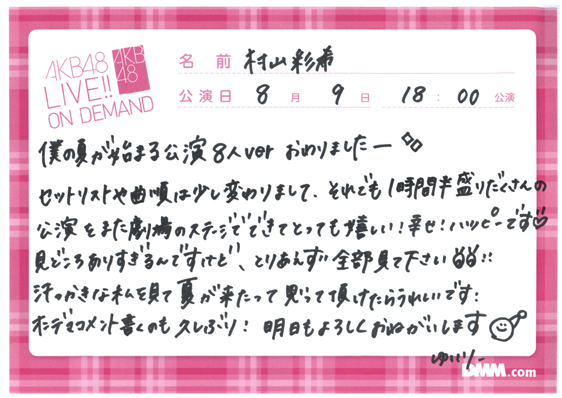 AKB48
LIVE!!
ON DEMAND
AKB
48
名前 村山彩希
公演日 8月9日 18:00 公演
僕の夏が始まる公演 8人ver おわりましたー
セットリストや曲順は少し変わりまして、それでも1時間半盛りだくさんの
公演をまた劇場のステージでできてとっても嬉しい!幸せ!ハッピーです♡
見どころありすぎるんですけど、とりあえず全部見て下さい!!
汗っかきな私を見て夏が来たって思って頂けたらうれしいです!
オンデマコメント書くのも久しぶり! 明日もよろしくおねがいします
ゆいりー
DMM.com